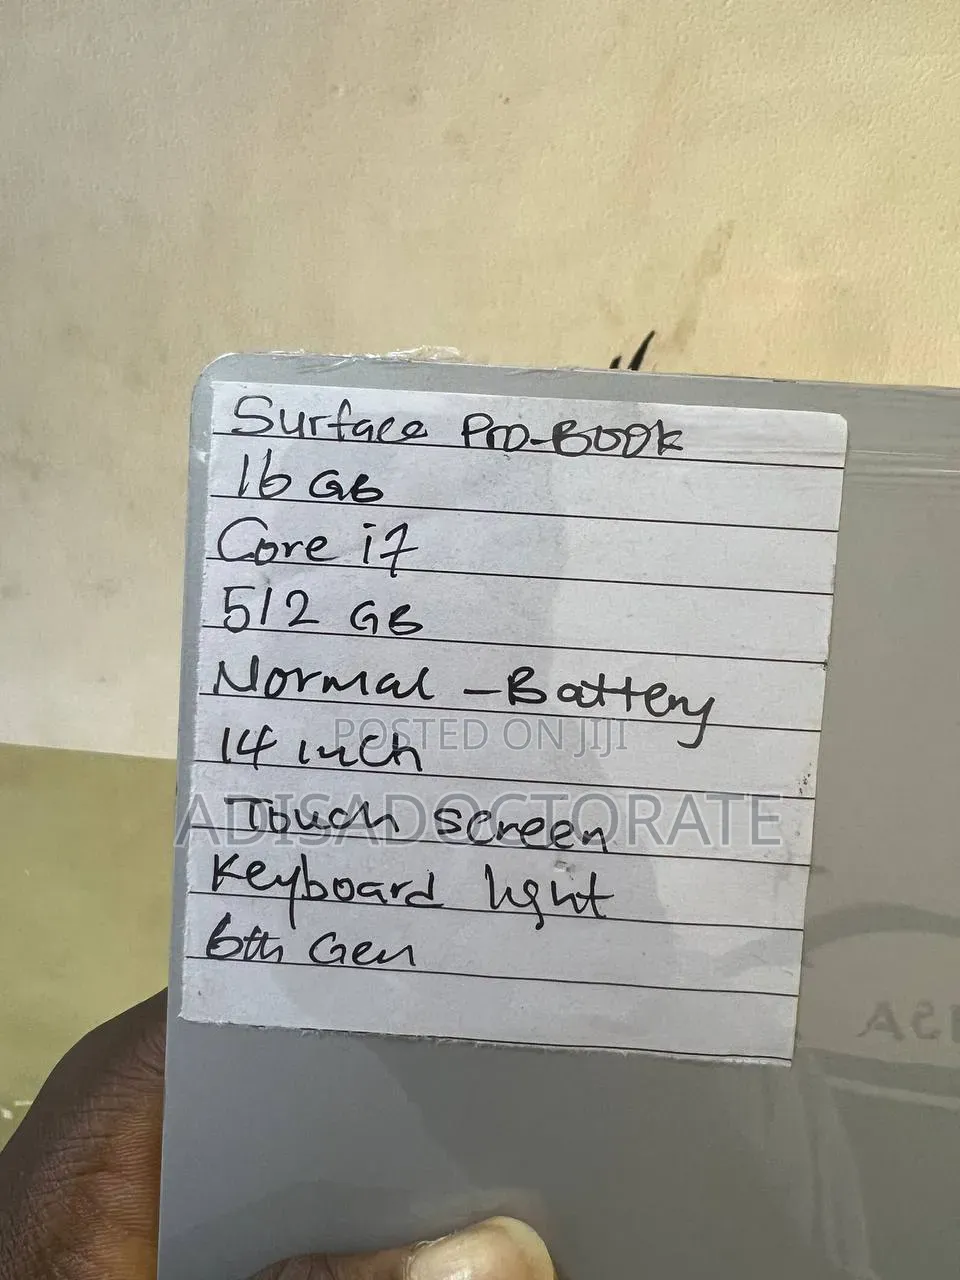 Surface Pro-Book
16 GB
Core i7
512 GB
Normal - Battery
POSTED ON JIJI
14 inch
ADISADOCTORATE
Touch screen
Keyboard light
6th Gen